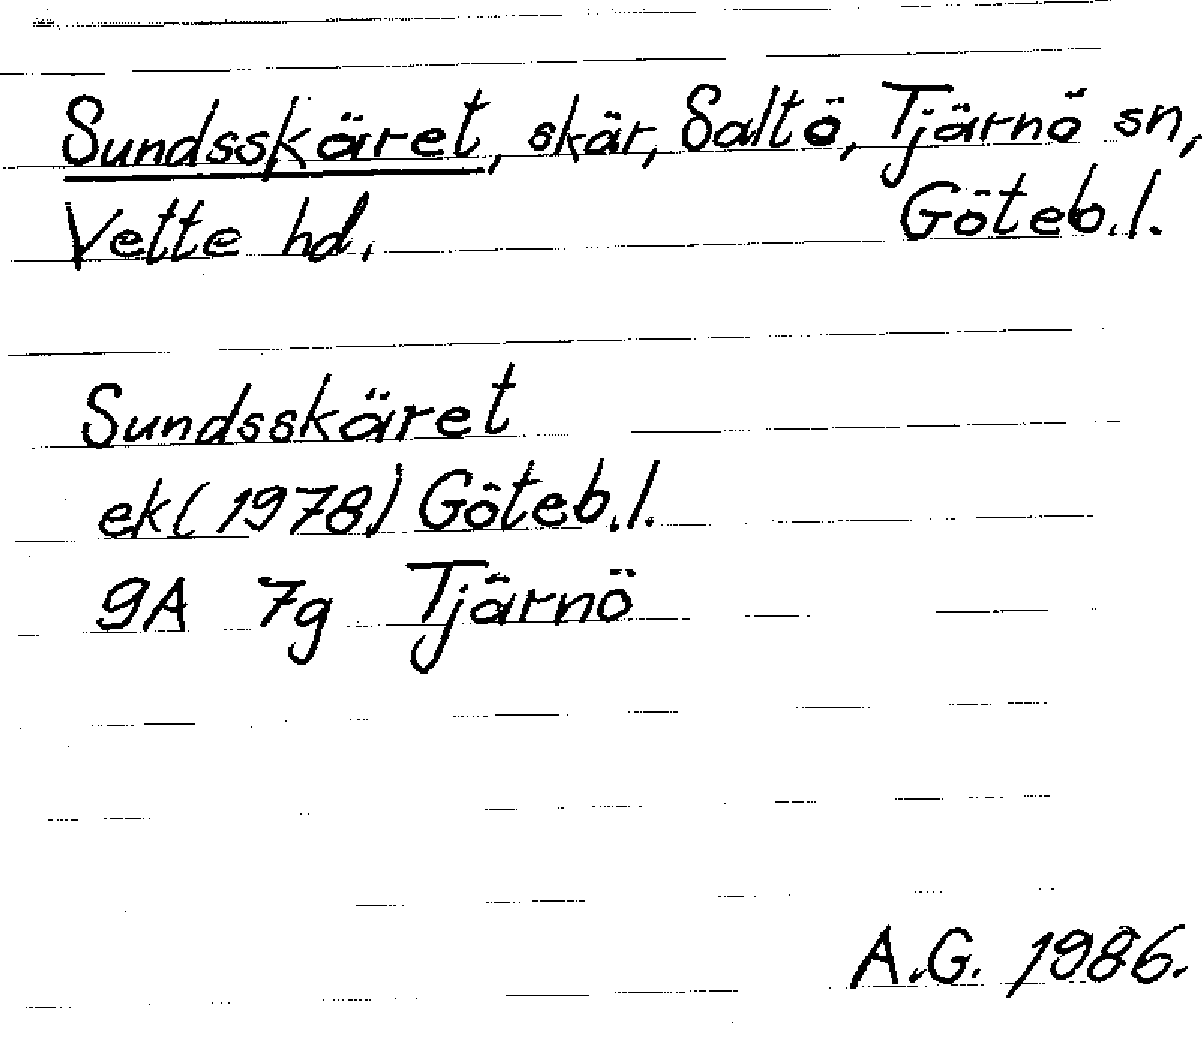 Sundsskäret, skär, Saltö, Tjärnö sn,
Vette hd. Göteb.l.
Sundsskäret
ek(1978) Göteb.l.
9A 7g Tjärnö
A.G. 1986.